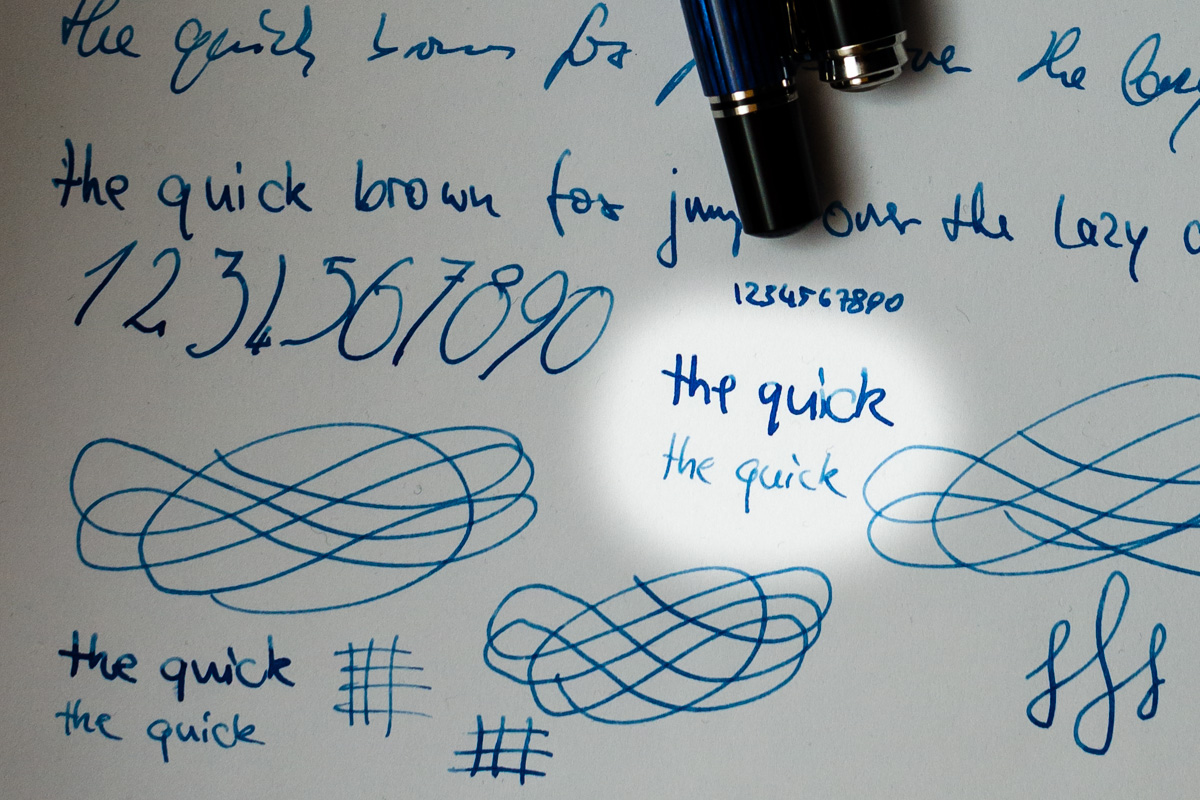 the quick brown fox over the lazy
the quick brown fox jump over the lazy d
1234567890
1234567890
the quick
the quick
the quick
the quick
fff